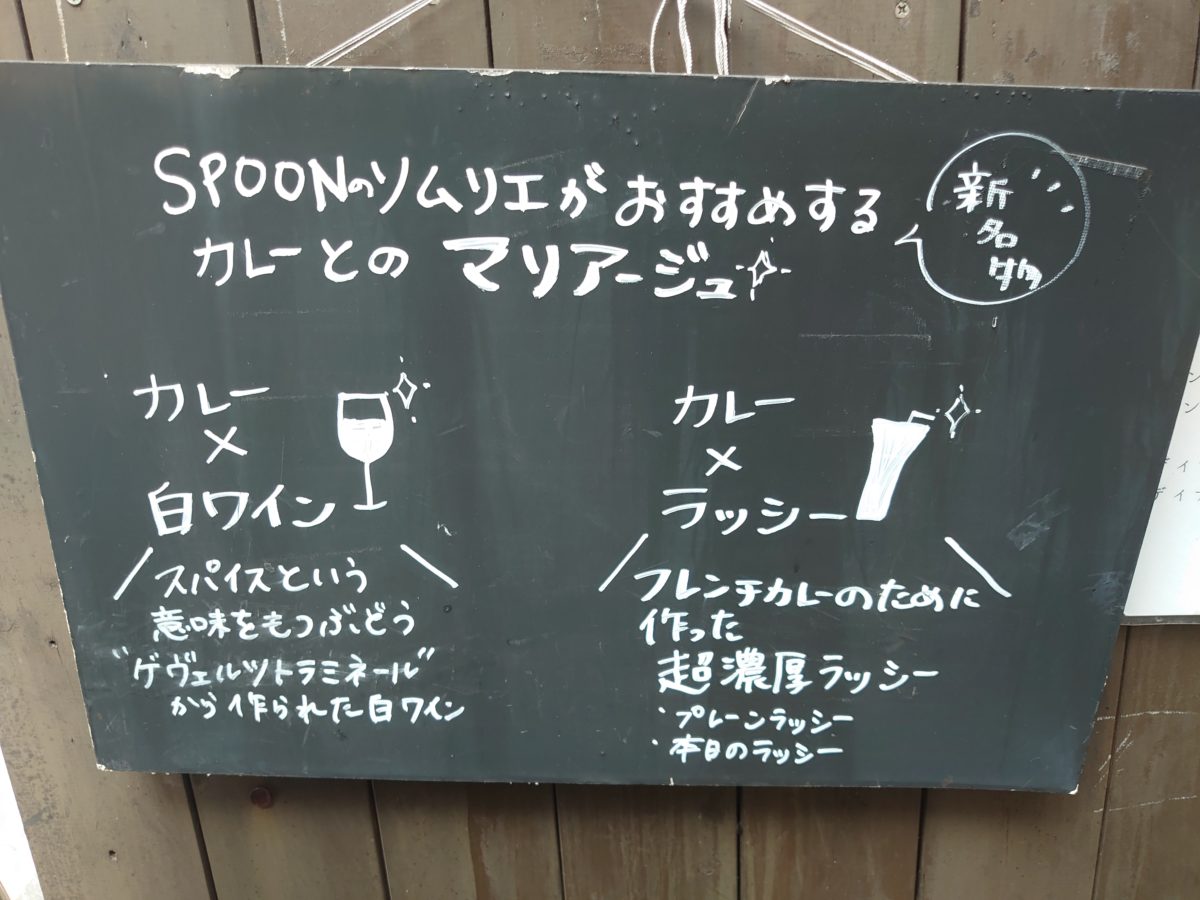 SPOONのソムリエがおすすめする
カレーとのマリアージュ
新
名
物
カレー
×
白ワイン
スパイスという
意味をもつぶどう
"ゲヴェルツトラミネール"
から作られた白ワイン
カレー
×
ラッシー
フレンチカレーのために
作った
超濃厚ラッシー
・プレーンラッシー
・本日のラッシー